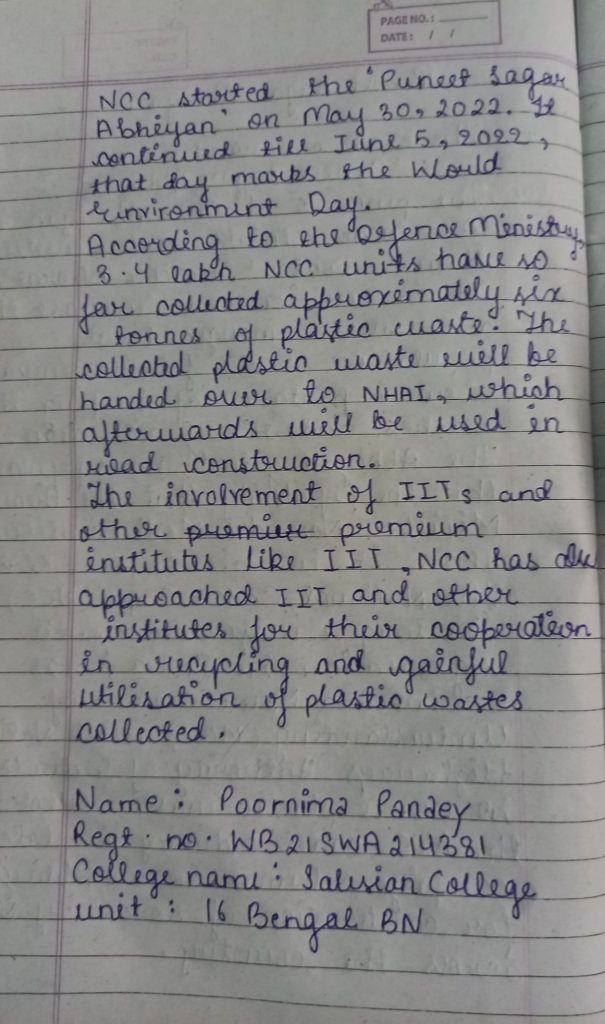 PAGE NO.:
DATE: / /
NCC started the 'Puneet Sagar
Abhiyan' on May 30, 2022. It
continued till June 5, 2022,
that day marks the World
Environment Day.
According to the Defence Ministry,
3.4 lakh NCC units have so
far collected approximately six
tonnes of plastic waste. The
collected plastic waste will be
handed over to NHAI, which
afterwards will be used in
road construction.
The involvement of IITs and
other premier premium
institutes like IIT, NCC has
approached IIT and other
institutes for their cooperation
in recycling and gainful
utilisation of plastic wastes
collected.
Name : Poornima Pandey
Regt. no. WB21SWA214381
College name : Salesian College
unit : 16 Bengal BN